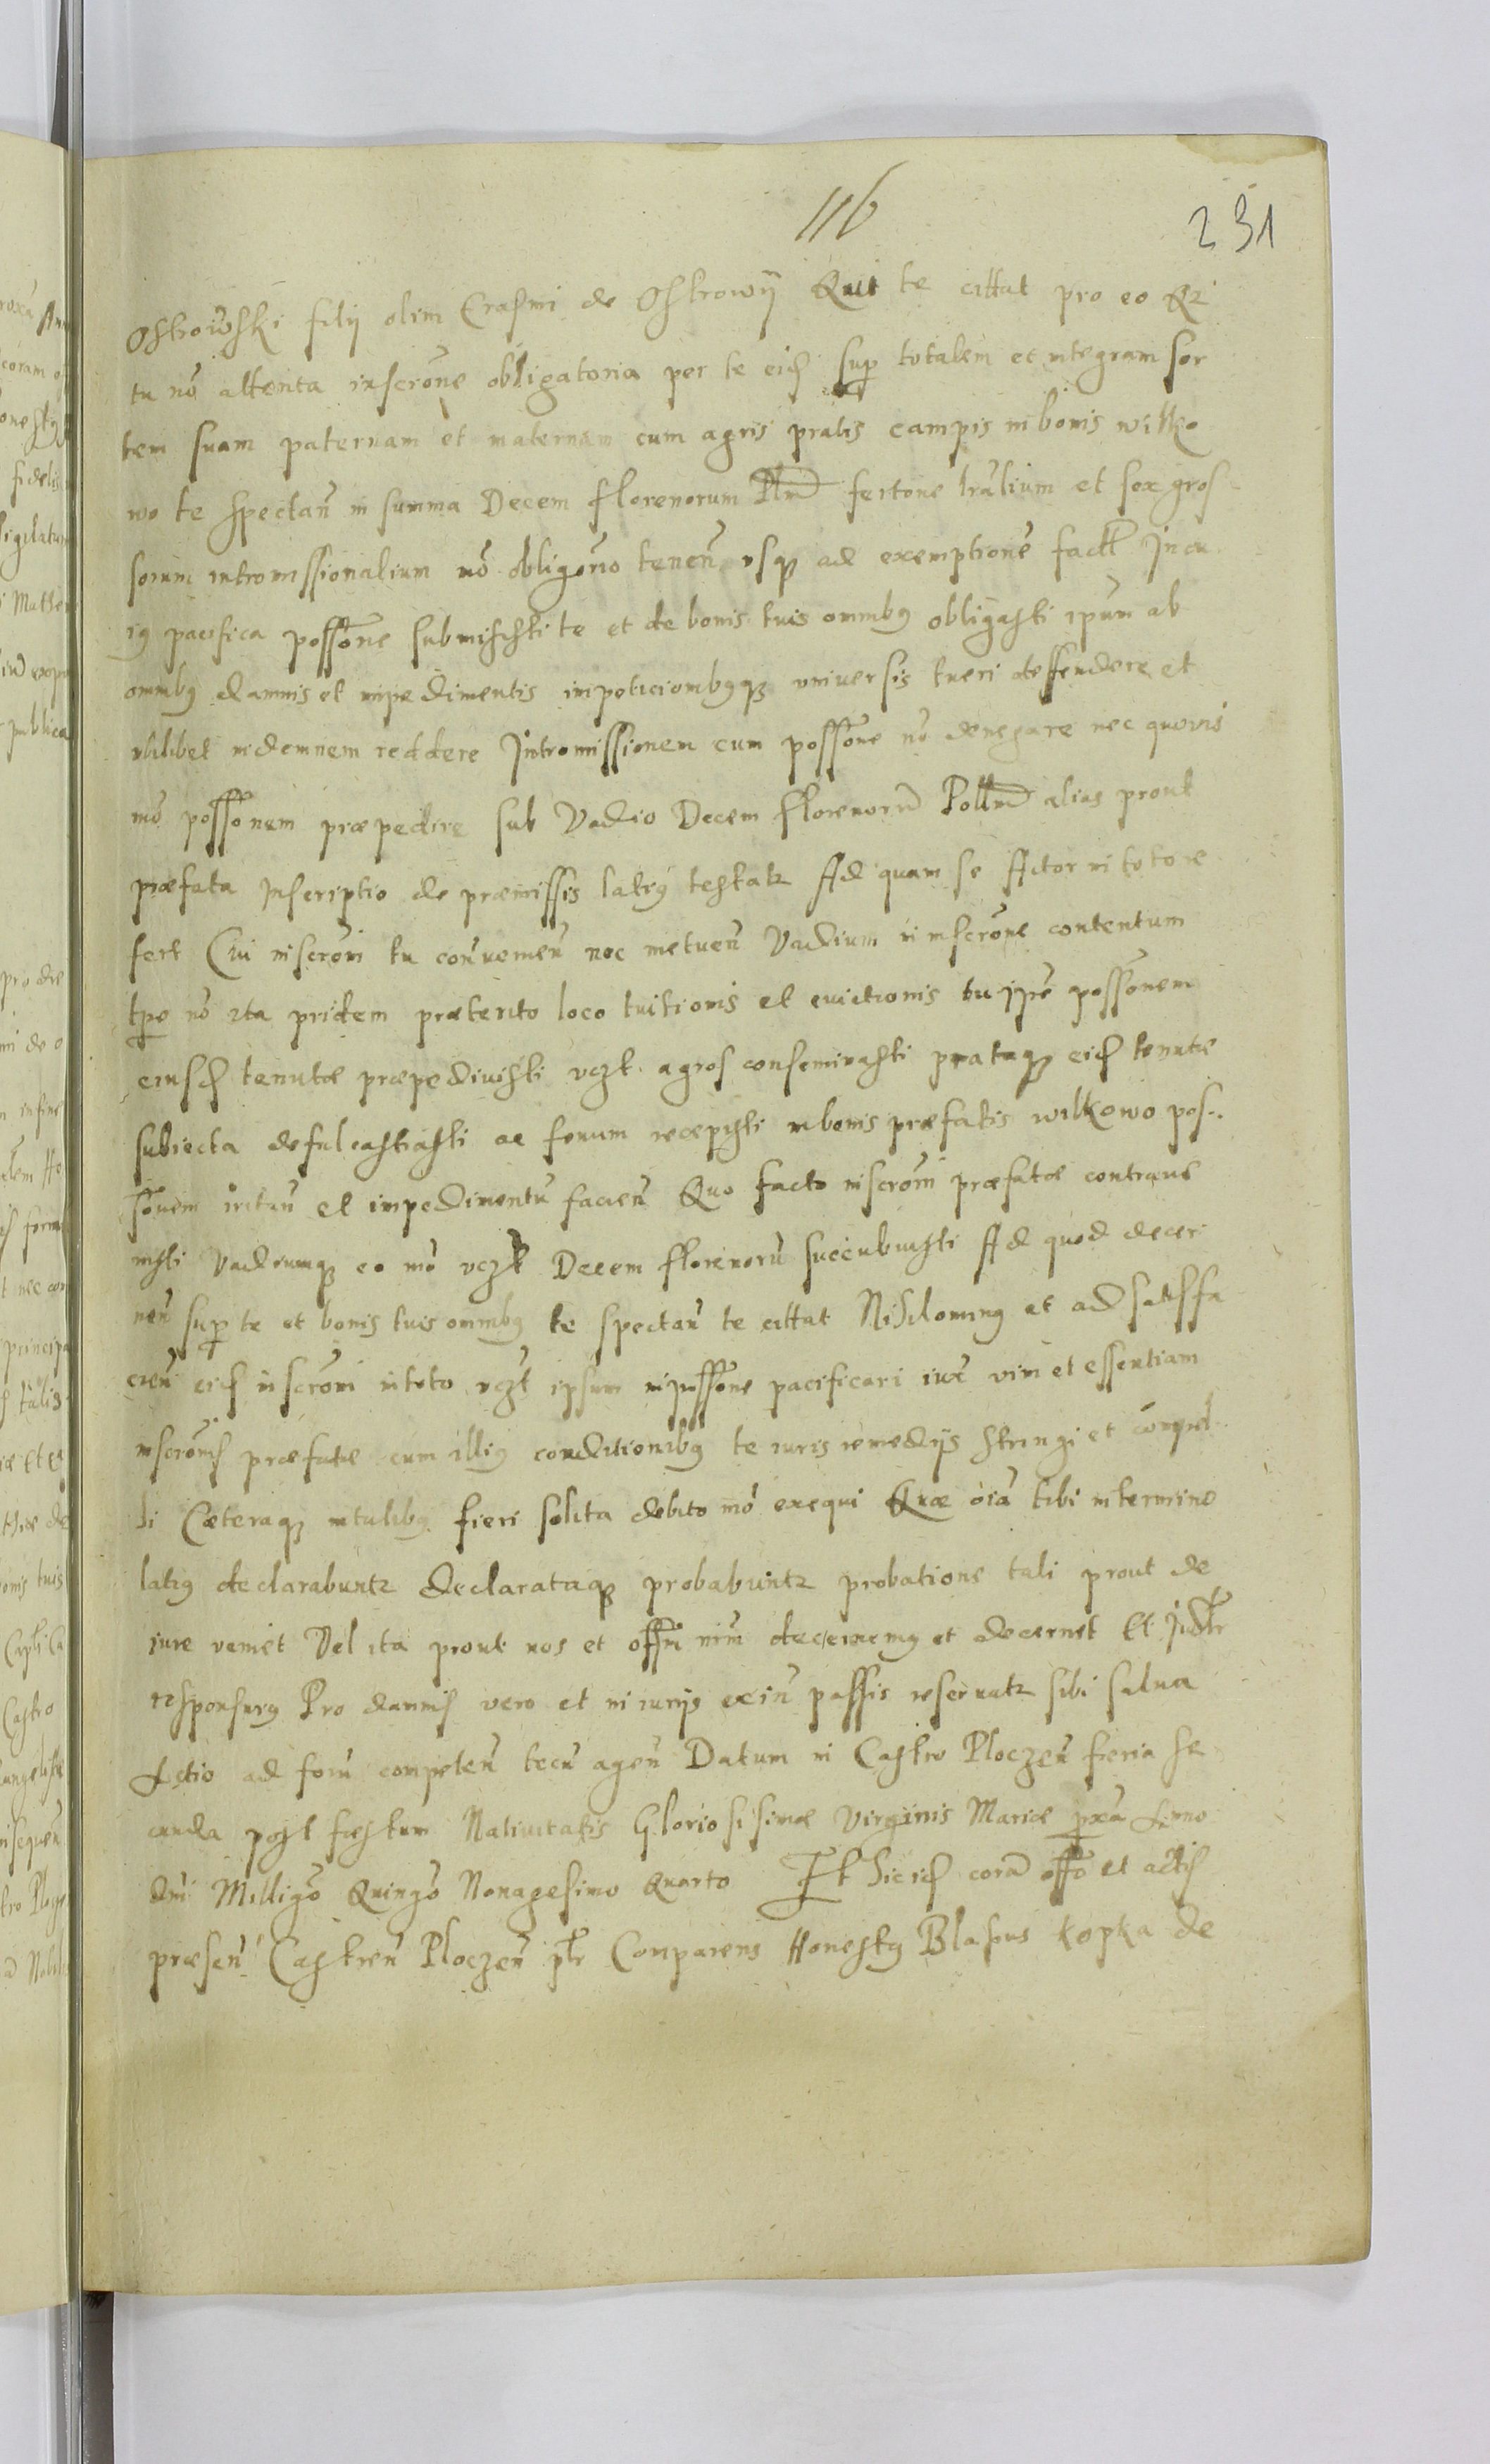 116
231
Ostrowski filÿ olim Erasmi de Ostrowÿ Quit te cittat pro eo Qz
tu nō attenta inscrōne obligatoria per te eid sup totalem et integram sor
tem suam paternam et maternam cum agris pratis campis in bonis wilko
wo te spectan̄ in summa Decem florenorum Plīnd fertone lrālium et sex gros
sorum intromissionalium nō obligōrio tenen̄ usq ad exemptionē fact In cu
ig pacifica possōne submisisti te et de bonis tuis omnibg obligasti ipūm ab
omnibg damnis et impedimentis impeticionibgq universis tueri deffendere et
ubilibet indemnem reddere Intromissionem cum possōne nō denegare nec quovis
mō possōnem præpedire sub Vadio Decem florenorū Pollīnd alias prout
præfata Inscriptio de præmissis latig testatz Ad quam se Actor in toto re
fert Cui inscrōni tu con̄uenien̄ nec metuen̄ Vadium in inscrōne contentum
tpe nō ita pridem præterito loco tuitionis et evictionis tu ipē possōnem
eiusd tenutæ præpedivisti vczt agros conseminasti prataq eid tenutæ
subiecta defulcastrasti ac fenum recepisti in bonis præfatis wilkowo pos
sōnem irritan̄ et impedimentū facien̄ Quo facto inscrōni præfatæ contraue
nisti Vadiumq eo mō vczt Decem florenorū succubuisti Ad quod decer
nen̄ sup te et bonis tuis omnibg te spectan̄ te cittat Nihiloming et ad satisfa
cien̄ eid inscrōni in toto vczt ipsum in possōne pacificari iux vim et essentiam
inscrōnis præfatæ cum illig conditionibg te iuris remedÿs stringi et compel
li Cæteraq in talibg fieri solita debito mō exequi Quæ oīa tibi in termino
latig declarabuntz declarataq probabuntz probatione tali prout de
iure veniet Vel ita prout nos et offm nrm decernemg et decernet Et Judtr
responsurg Pro damnis vero et iniurÿs exin̄ passis reservatz sibi salua
Actio ad forū competen̄ tecū agen̄ Datum in Castro Ploczen̄ feria se
cunda post festum Nativitatis Gloriosissimæ Virginis Mariæ pxā Anno
Dnī Milligō Quingō Nonagesimo Quarto Et hic id corā offō et actis
præsen̄ Castren̄ Ploczen̄ ptr Comparens Honestg Blasius Kopka de